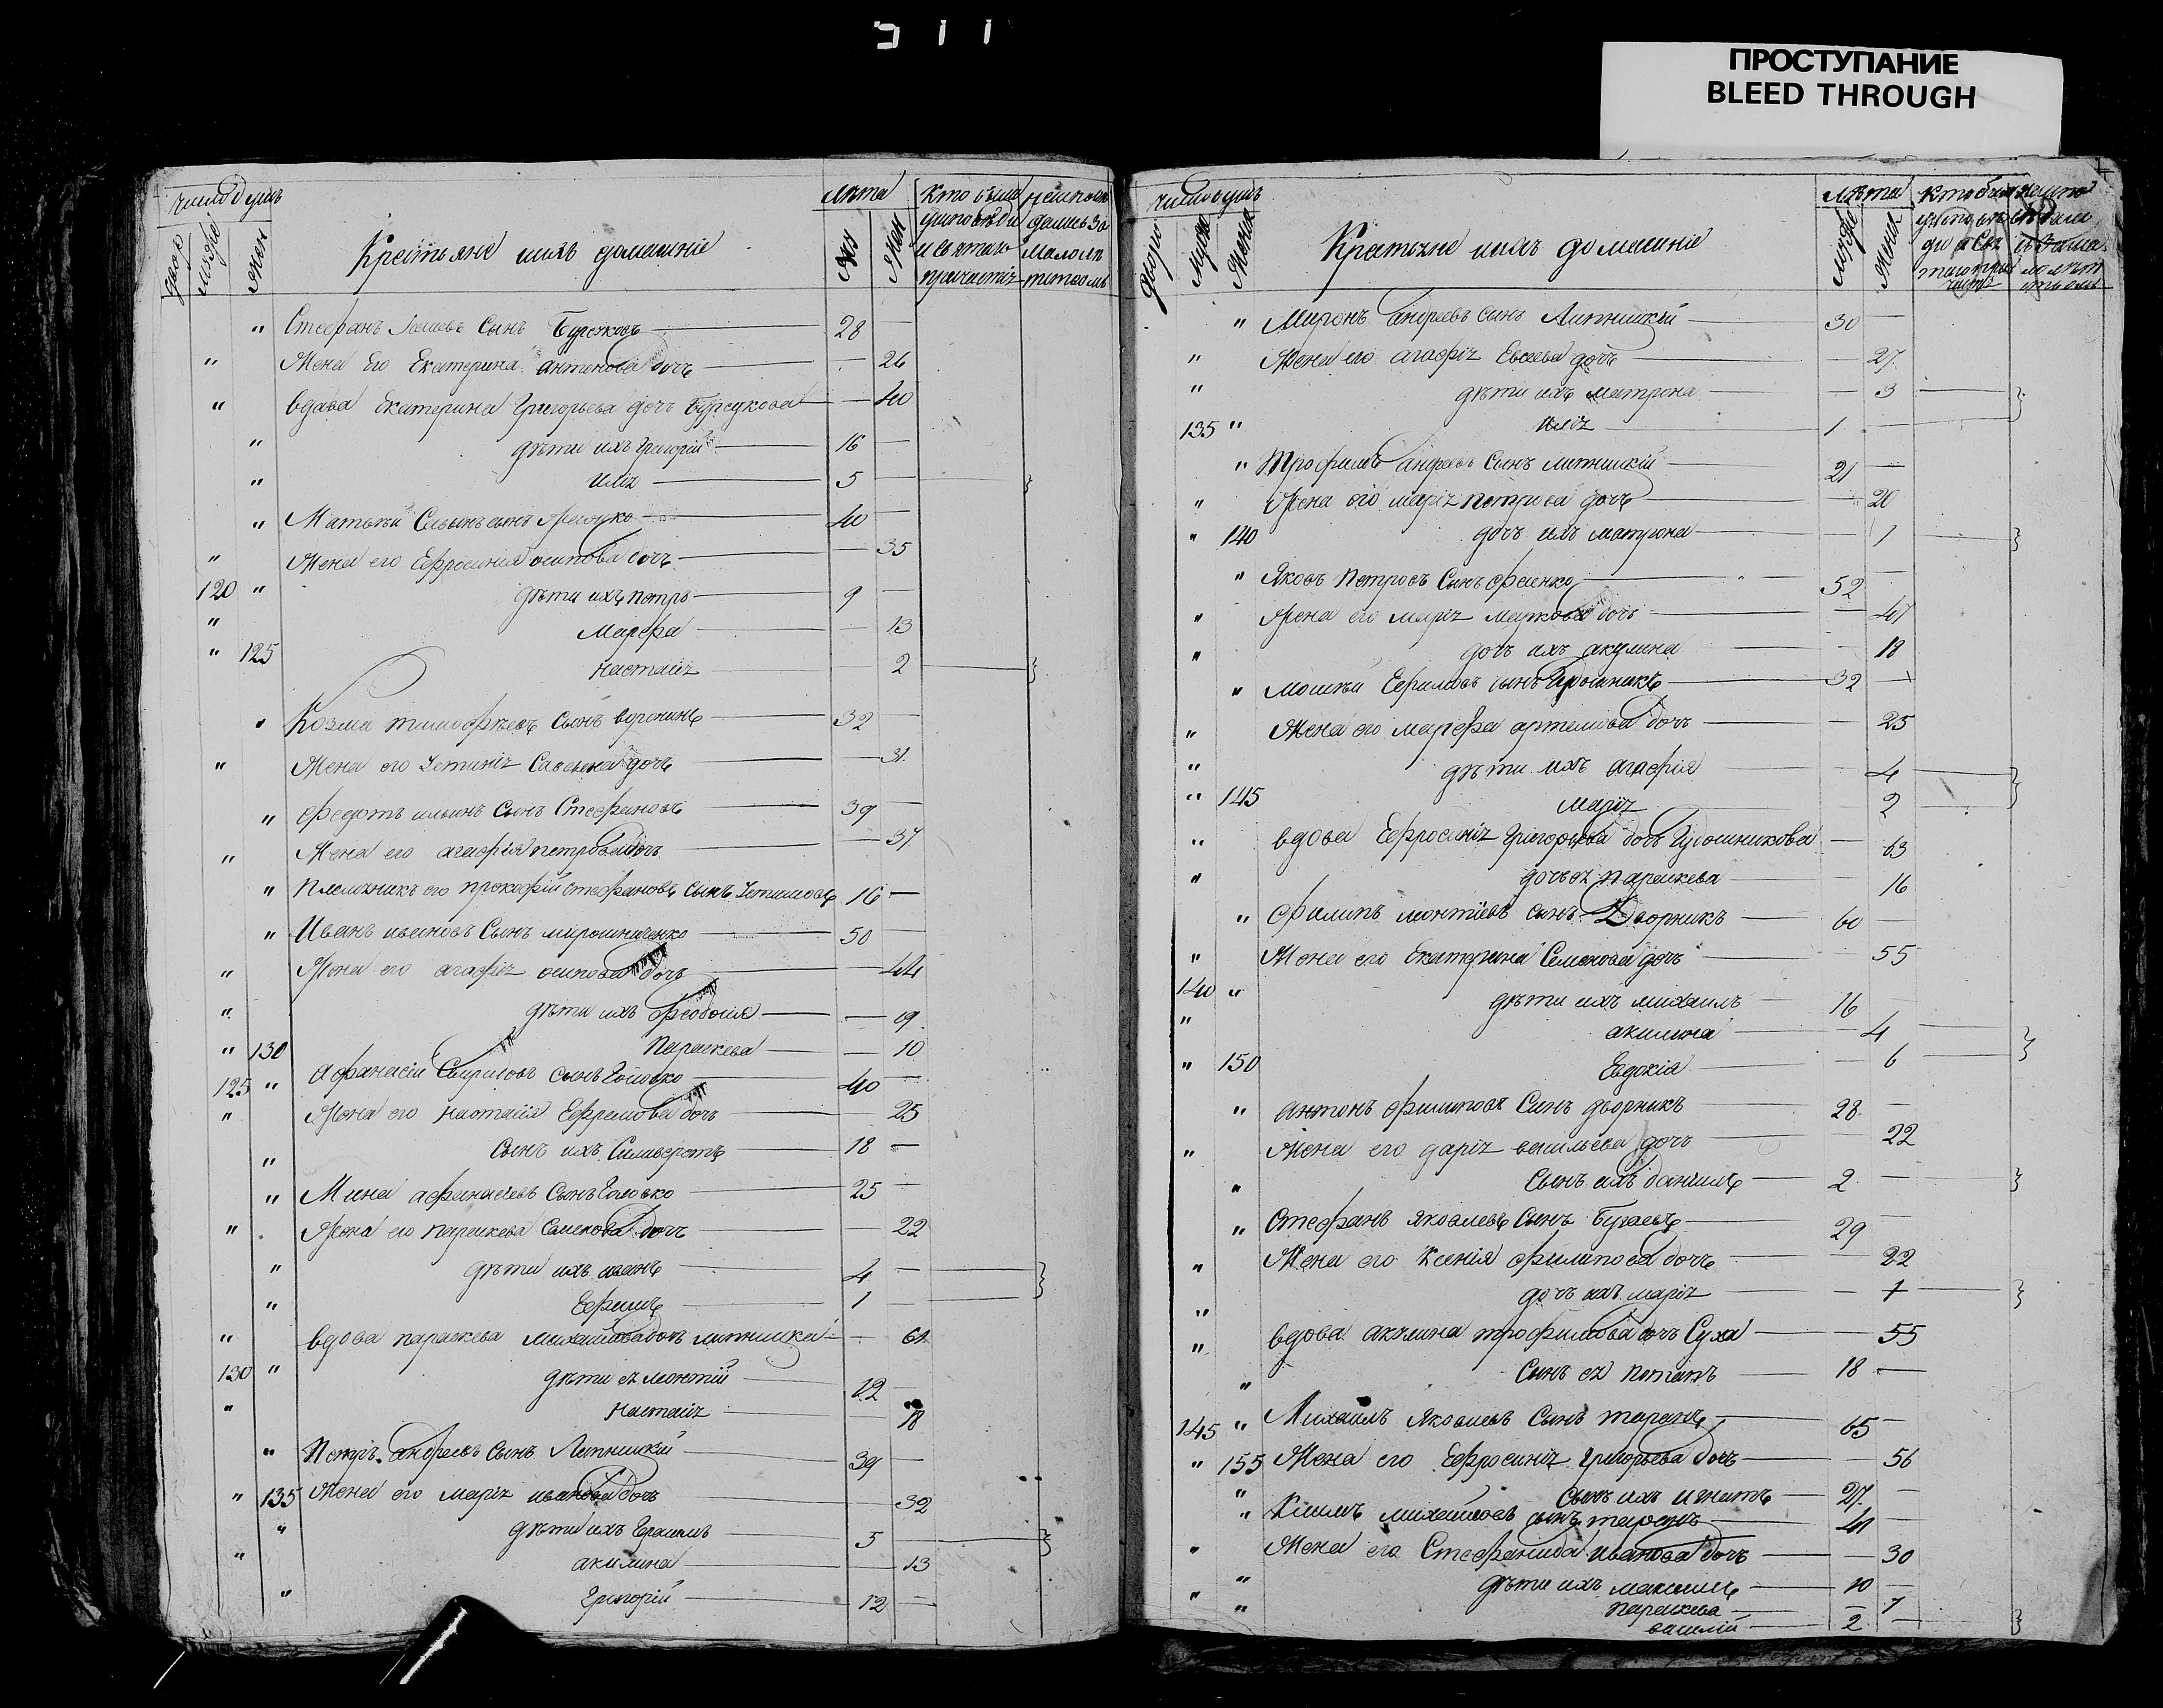 ПРОСТУПАНИЕ
BLEED THROUGH
число душъ
двор мужс жен
Крестьяне ихъ домашніе
лѣта
муж жен
кто былъ
у исповѣди
и св. таинъ
причастія
не исповѣ
дались за
малолѣ
тствомъ
" Стефанъ сынъ 28 —
" Жена его Екатерина антонова дочь — 26
" вдова Екатерина Григорьева дочь Бурсукова — 40
" дѣти ихъ Григорій 16 —
" илія 5 —
" Матвѣй сынъ 40 —
" Жена его Ефросинія осипова дочь — 35
120 " дѣти ихъ петръ 9 —
" Марфа — 13
" 125 настасія 2
" Козма тимофѣевъ сынъ воронинъ 32 —
" Жена его Устинія Савельева дочь — 31
" Федотъ ильинъ сынъ Стефановъ 39 —
" Жена его агафія петрова дочь — 37
" племянникъ его прокофій стефановъ сынъ 16 —
" Иванъ ивановъ сынъ мирошниченко 50 —
" Жена его агафія осипова дочь — 44
" дѣти ихъ Феодосія — 19
" 130 Параскева — 10
125 " Афанасій сынъ Головко 40 —
" Жена его настасія Ефремова дочь 25
" сынъ ихъ Силиверстъ 18 —
" Мина афанасіевъ сынъ Головко 25 —
" Жена его параскева Семенова дочь — 22
" дѣти ихъ иванъ 4 —
" Ефимъ 1 —
" вдова параскева михайлова дочь литницка — 61
130 " дѣти ея леонтій 12 —
" настасія 18
" Петръ андреевъ сынъ Литницкій 39 —
" 135 Жена его марія иванова дочь 32
" дѣти ихъ Герасимъ 5
" акилина 13
" Григорій 12 —
число душъ
двора мужс женск
Крестьяне ихъ домашніе
лѣта
мужс женс
" Миронъ андреевъ сынъ Литницкій 30 —
" Жена его агафія Евсеева дочь — 27
" дѣти ихъ матрона — 3
135 " илія 1 —
" Трофимъ андреевъ сынъ литницкій 21 —
" Жена его марія петрова дочь — 20
" 140 дочь ихъ матрона — 1
" Яковъ петровъ сынъ 52 —
" Жена его марія дочь — 47
" дочь ихъ акулина — 18
" Ефимовъ сынъ 32 —
" Жена его марфа артемова дочь — 25
" дѣти ихъ агафія 4
" 145 Марія 2
" вдова Ефросинія Григорьева дочь — 63
" дочь ея параскева — 16
" Филипъ леонтіевъ сынъ Дворникъ 60 —
" Жена его Екатерина Семенова дочь 55
140 " дѣти ихъ михаилъ 16
" акилина — 4
" 150 Евдокія — 6
" антонъ филиповъ сынъ дворникъ 28 —
" Жена его дарія васильева дочь — 22
" сынъ ихъ даніилъ 2 —
" Стефанъ яковлевъ сынъ Бугаевъ 29 —
" Жена его Ксенія филипова дочь — 22
" дочь ихъ марія — 1
" вдова акилина трофимова дочь Суха — 55
" сынъ ея потапъ 18 —
145 " Михаилъ яковлевъ сынъ таранъ 65 —
" 155 Жена его Ефросинія Григорьева дочь — 56
" сынъ ихъ игнатъ 27 —
" Климъ михайловъ сынъ таранъ 41 —
" Жена его Стефанида иванова дочь — 30
" дѣти ихъ максимъ 10 —
" параскева — 7
" василій 2 —